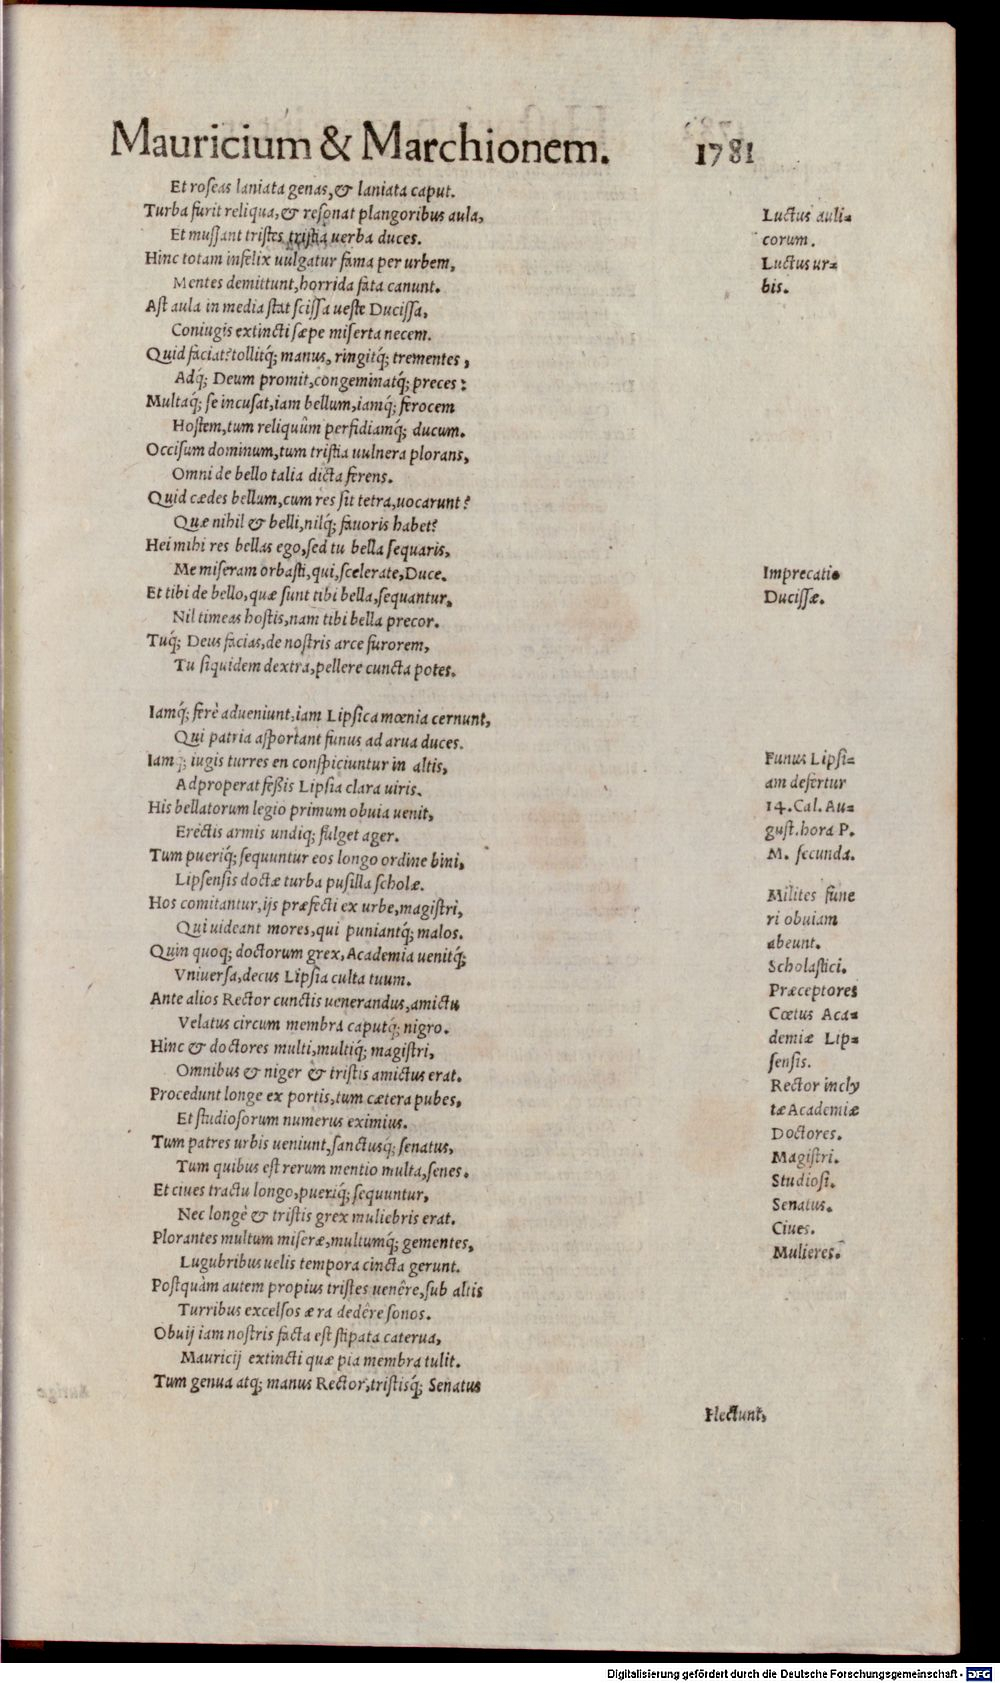 Mauricium & Marchionem. 1781
Et roseas laniata genas, & laniata caput.
Turba furit reliqua, & resonat plangoribus aula,
Et mussant tristes tristia uerba duces.
Hinc totam infelix uulgatur fama per urbem,
Mentes demittunt, horrida fata canunt.
Ast aula in media stat scissa ueste Ducissa,
Coniugis extincti sæpe miserta necem.
Quid faciat? tollitq́; manus, ringitq́; trementes,
Adq́; Deum promit, congeminatq́; preces:
Multaq́; se incusat, iam bellum, iamq́; ferocem
Hostem, tum reliquûm perfidiamq́; ducum.
Occisum dominum, tum tristia uulnera plorans,
Omni de bello talia dicta ferens.
Quid cædes bellum, cum res sit tetra, uocarunt?
Quæ nihil & belli, nilq́; fauoris habet?
Hei mihi res bellas ego, sed tu bella sequaris,
Me miseram orbasti, qui, scelerate, Duce.
Et tibi de bello, quæ sunt tibi bella, sequantur,
Nil timeas hostis, nam tibi bella precor.
Tuq́; Deus facias, de nostris arce furorem,
Tu siquidem dextra, pellere cuncta potes.
Iamq́; ferè adueniunt, iam Lipsica mœnia cernunt,
Qui patria asportant funus ad arua duces.
Iamq́; iugis turres en conspiciuntur in altis,
Adproperat feßis Lipsia clara uiris.
His bellatorum legio primum obuia venit,
Erectis armis undiq; fulget ager.
Tum pueriq́; sequuntur eos longo ordine bini,
Lipsensis doctæ turba pusilla scholæ.
Hos comitantur, ijs præfecti ex urbe, magistri,
Qui uideant mores, qui puniantq́; malos.
Quin quoq; doctorum grex, Academia uenitq́;
Vniuersa, decus Lipsia culta tuum.
Ante alios Rector cunctis uenerandus, amictu
Velatus circum membra caputq́; nigro.
Hinc & doctores multi, multiq́; magistri,
Omnibus & niger & tristis amictus erat.
Procedunt longe ex portis, tum cætera pubes,
Et studiosorum numerus eximius.
Tum patres urbis ueniunt, sanctusq́; senatus,
Tum quibus est rerum mentio multa, senes.
Et ciues tractu longo, pueriq́; sequuntur,
Nec longè & tristis grex muliebris erat.
Plorantes multum miseræ, multumq́; gementes,
Lugubribus uelis tempora cincta gerunt.
Postquàm autem propius tristes uenêre, sub altis
Turribus excelsos æra dedêre sonos.
Obuij iam nostris facta est stipata caterua,
Mauricij extincti quæ pia membra tulit.
Tum genua atq; manus Rector, tristisq́; Senatus
Flectunt,
Luctus auli-
corum.
Luctus ur-
bis.
Imprecatio
Ducissæ.
Funus Lipsi-
am defertur
14. Cal. Au-
gust. hora P.
M. secunda.
Milites fune
ri obuiam
abeunt.
Scholastici.
Præceptores
Cœtus Aca-
demiæ Lip-
sensis.
Rector incly
tæ Academiæ
Doctores.
Magistri.
Studiosi.
Senatus.
Ciues.
Mulieres.
Digitalisierung gefördert durch die Deutsche Forschungsgemeinschaft - DFG